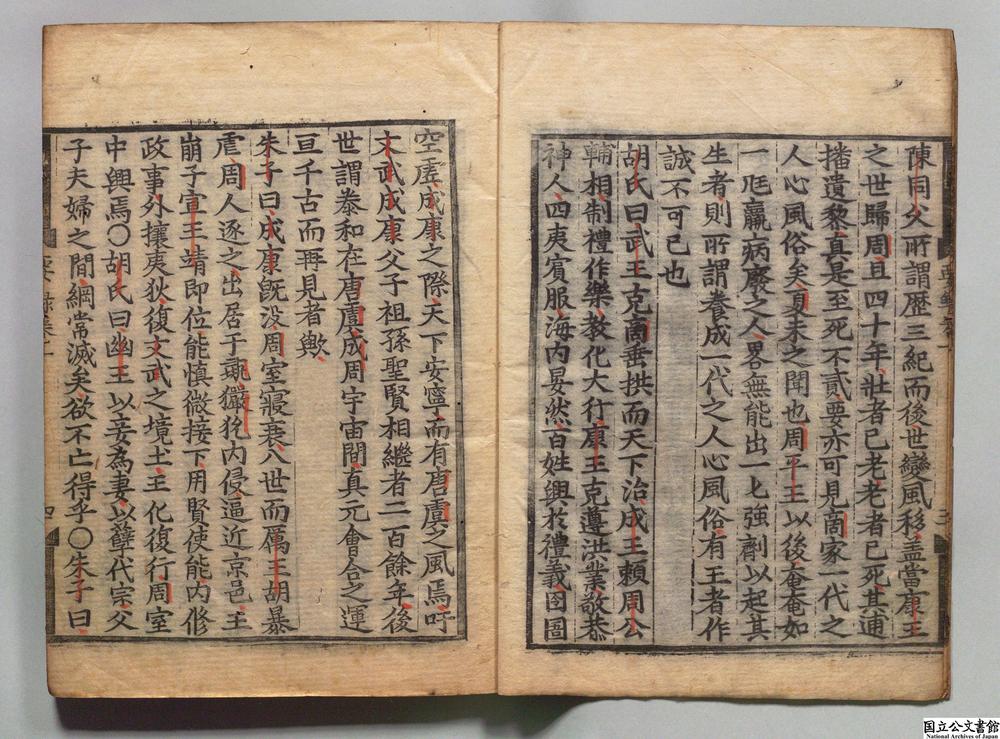 陳同父所謂歴三紀而後世變風移盖當康王
之世歸周且四十年壯者已老老者已死其逋
播遺黎真是至死不貳要亦可見商家一代之
人心風俗矣夏未之聞也周平王以後奄奄如
一尫羸病廢之人畧無能出一匕強劑以起其
生者則所謂養成一代之人心風俗有王者作
誠不可已也
胡氏曰武王克商垂拱而天下治成王頼周公
輔相制禮作樂教化大行康王克遵洪業敬恭
神人四夷賓服海内晏然百姓興於禮義囹圄
空虗成康之際天下安寧而有唐虞之風焉吁
文武成康父子祖孫聖賢相繼者二百餘年後
世謂泰和在唐虞成周宇宙間真元會合之運
亘千古而再見者歟
朱子曰成康旣没周室寢衰八世而厲王胡暴
虐周人逐之出居于彘玁狁内侵逼近京邑王
崩子宣王靖即位能慎微接下用賢使能内修
政事外攘夷狄復文武之境土王化復行周室
中興焉〇胡氏曰幽王以妾為妻以孽代宗父
子夫婦之間綱常滅矣欲不亡得乎〇朱子曰
四
国立公文書館
National Archives of Japan